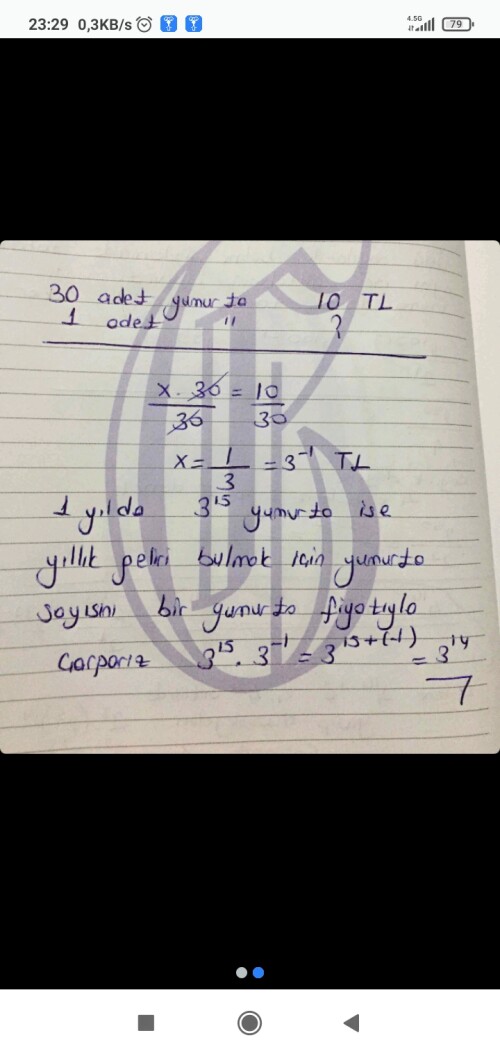 23:29 0,3KB/s 4.5G 79
30 adet yumurta 10 TL
1 adet " ?
x . 30 = 10
30 30
x = 1 = 3⁻¹ TL
3
1 yılda 3¹⁵ yumurta ise
yıllık geliri bulmak için yumurta
sayısını bir yumurta fiyatıyla
Çarparız 3¹⁵ . 3⁻¹ = 3¹⁵⁺⁽⁻¹⁾ = 3¹⁴